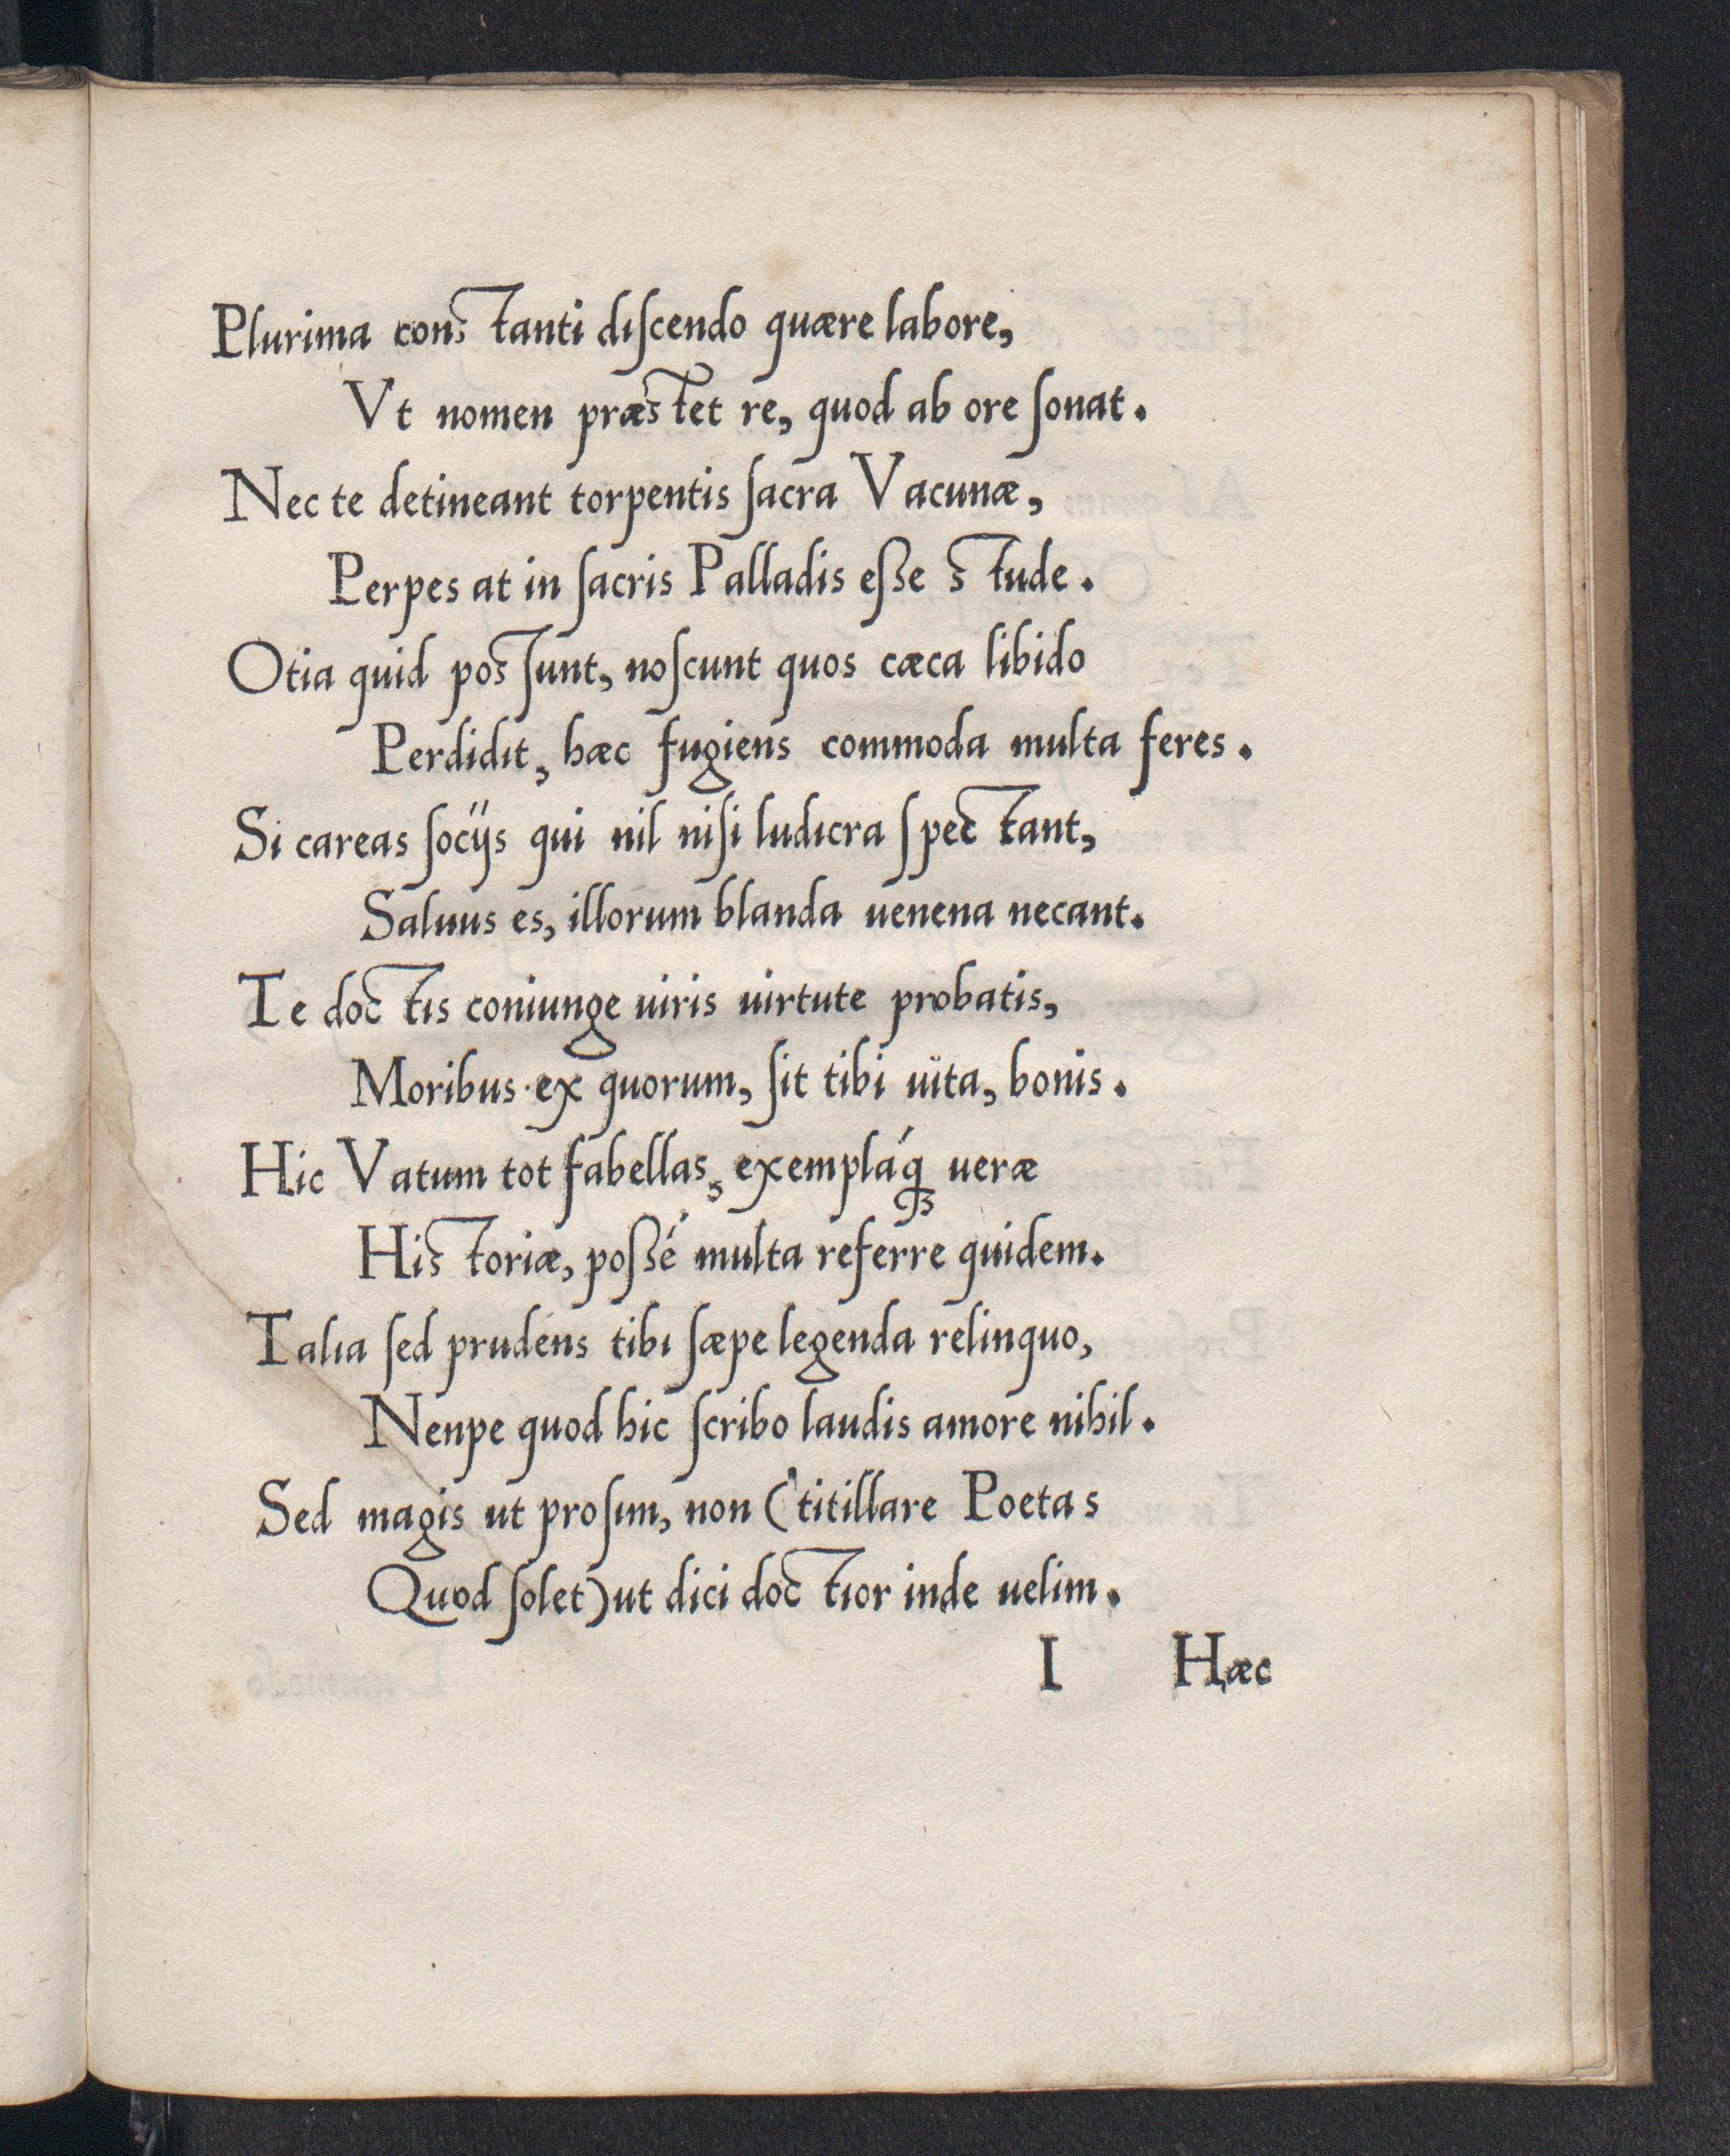 Plurima constanti diſcendo quære labore,
Vt nomen præstet re, quod ab ore ſonat.
Nec te detineant torpentis ſacra Vacunæ,
Perpes at in ſacris Palladis eſse stude.
Otia quid posſunt, noſcunt quos cæca libido
Perdidit, hæc fugiens commoda multa feres.
Si careas ſocijs qui nil niſi ludicra ſpectant,
Saluus es, illorum blanda uenena necant.
Te doctis coniunge uiris uirtute probatis,
Moribus ex quorum, ſit tibi uita, bonis.
Hic Vatum tot fabellas, exempláqꝫ ueræ
Historiæ, poſsé multa referre quidem.
Talia ſed prudens tibi ſæpe legenda relinquo,
Nenpe quod hic ſcribo laudis amore nihil.
Sed magis ut proſim, non (titillare Poetas
Quod ſolet) ut dici doctior inde uelim.
I Hæc